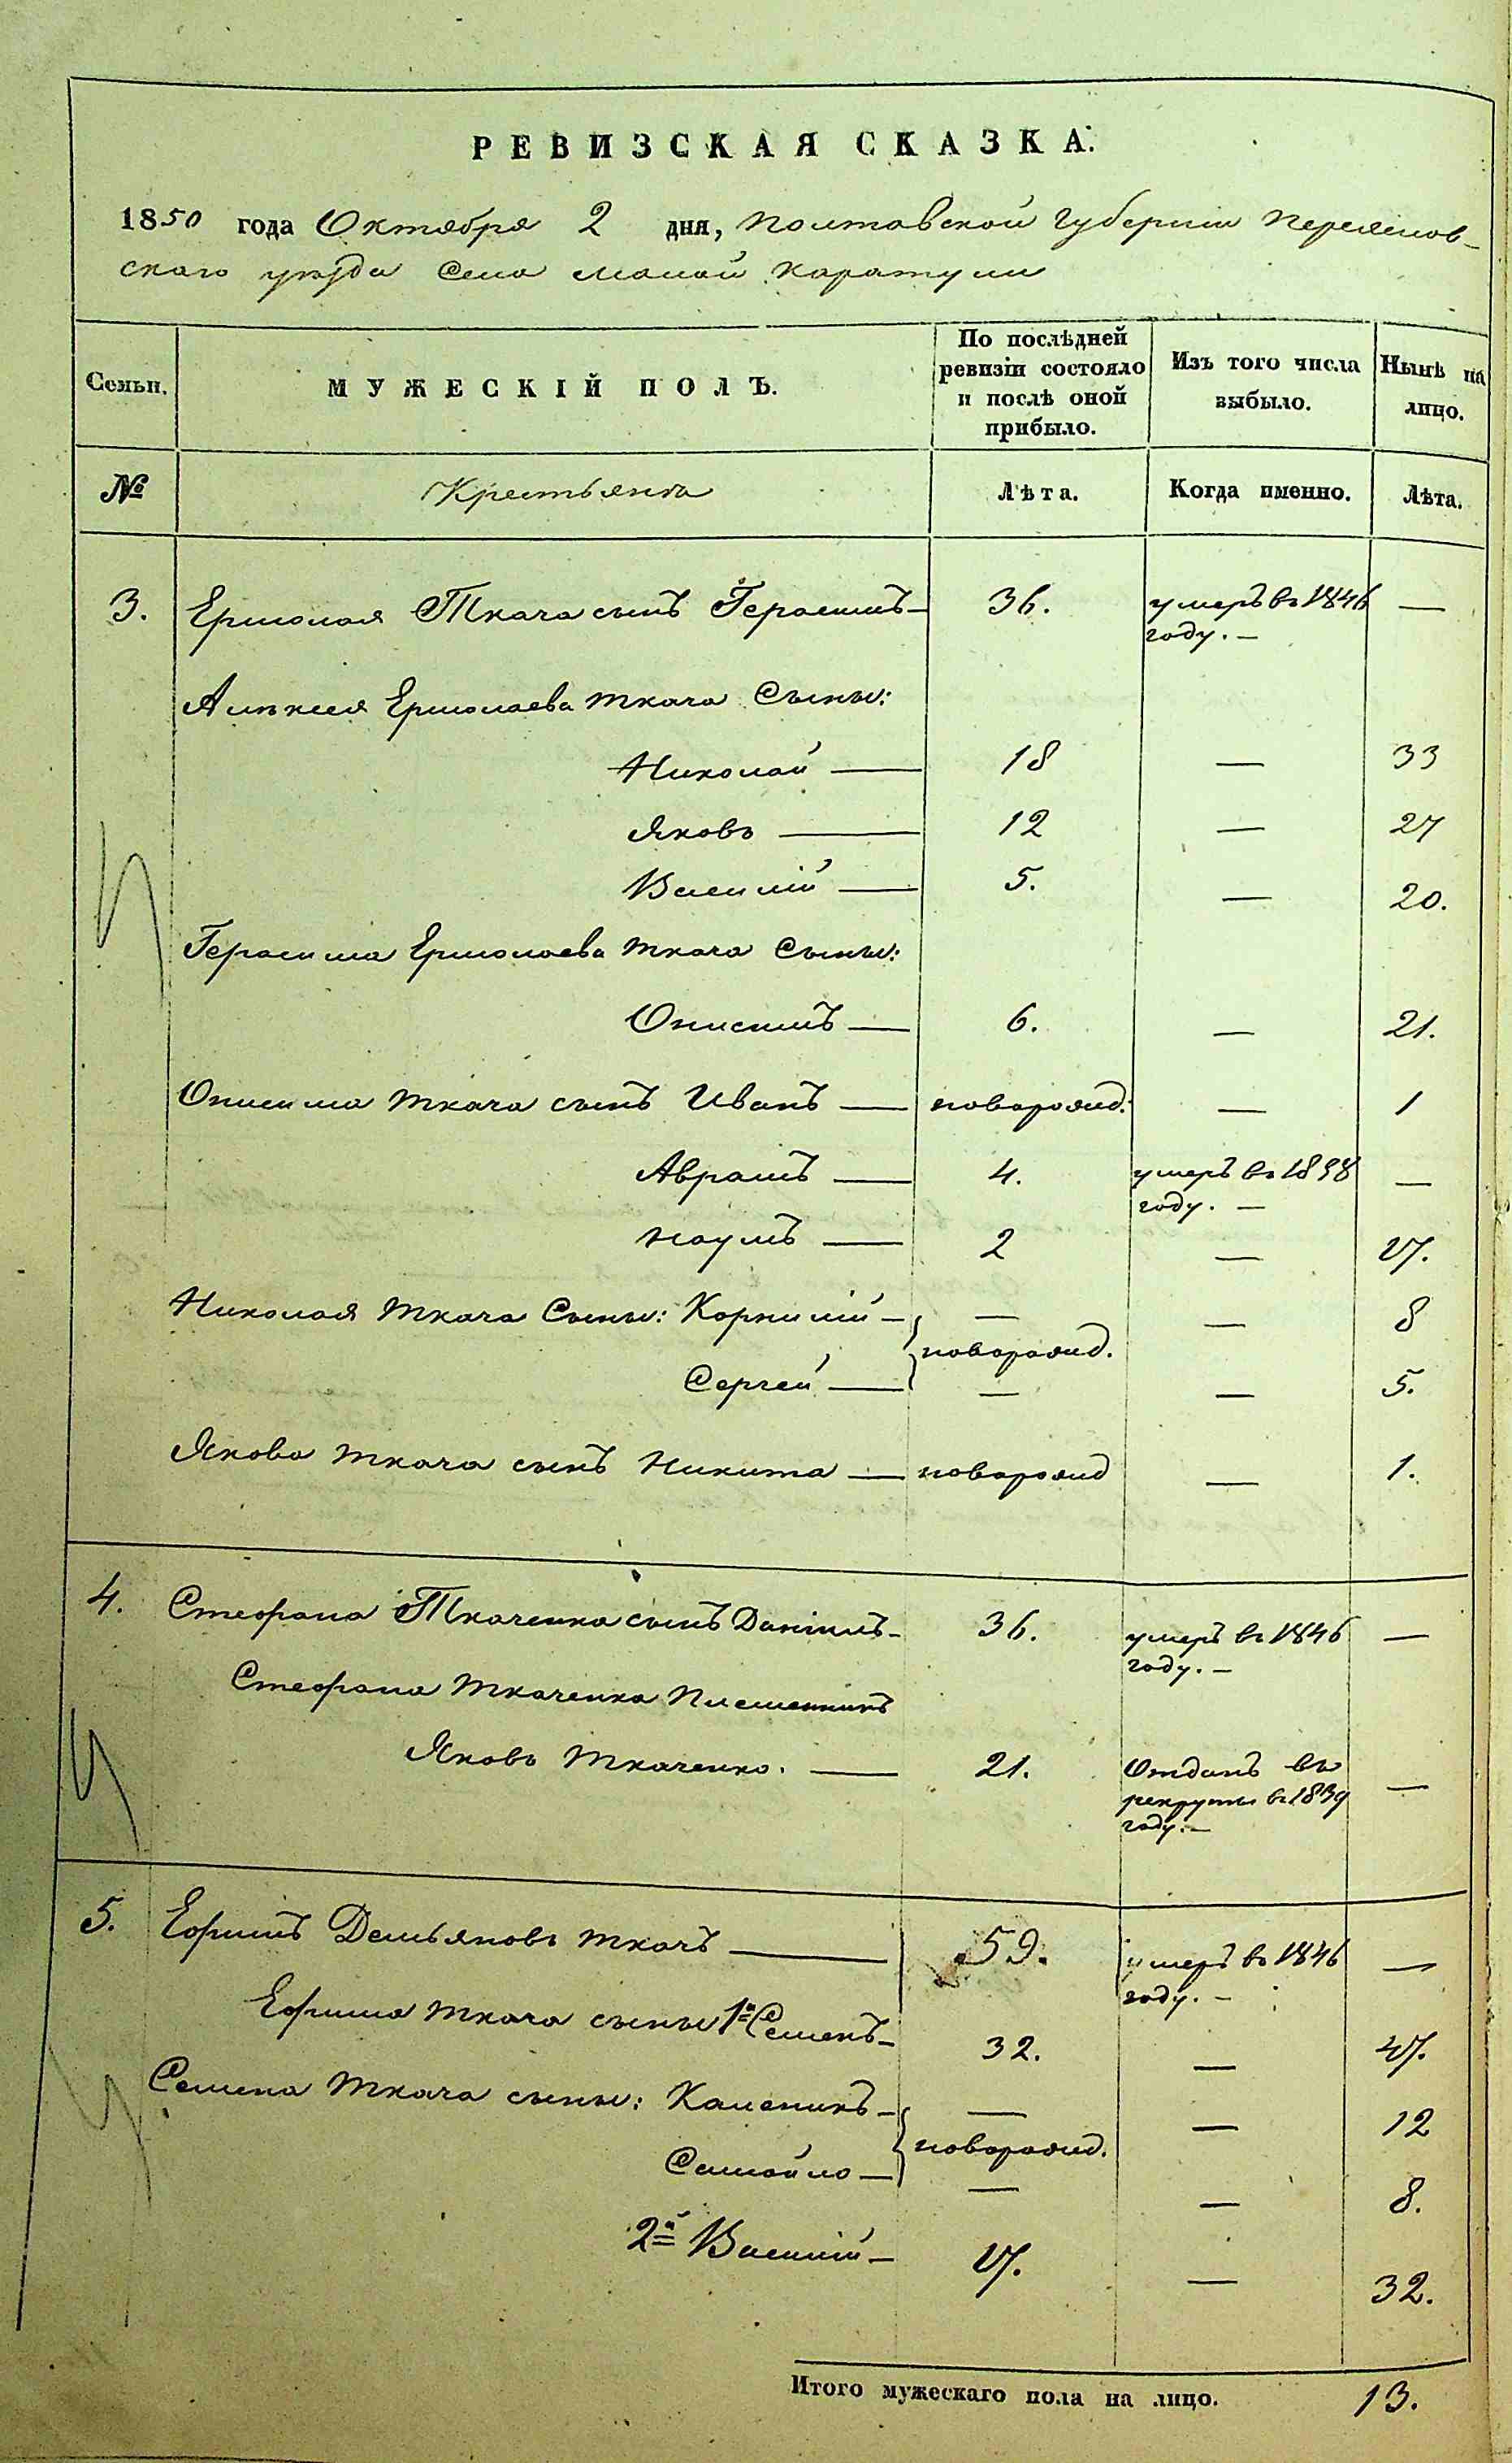 РЕВИЗСКАЯ СКАЗКА.
1850 года Октября 2 дня, Полтавской Губернии Переяслов-
скаго уѣзда Села Малой Каратули
Семьи. МУЖЕСКІЙ ПОЛЪ. По послѣдней ревизіи состояло и послѣ оной прибыло. Изъ того числа выбыло. Нынѣ на лицо.
№ Крестьянъ Лѣта. Когда именно. Лѣта.
3. Ермолая Ткача сынъ Герасимъ — 36. умеръ въ 1846 году. — —
Алексея Ермолаева Ткача Сыны:
Николай — 18 — 33
Яковъ — 12 — 27
Василій — 5. — 20.
Герасима Ермолаева Ткача Сыны:
Онисимъ — 6. — 21.
Онисима Ткача сынъ Иванъ — новорожд: — 1
Аврамъ — 4. умеръ въ 1838 году. — —
Наумъ — 2 — 17.
Николая Ткача Сыны: Корнилій — — — 8
новорожд.
Сергей — — — 5.
Якова Ткача сынъ Никита — новорожд — 1.
4. Стефана Ткаченка сынъ Даніилъ — 36. умеръ въ 1846 году. — —
Стефана Ткаченка Племянникъ
Яковъ Ткаченко. — 21. Отданъ въ рекруты въ 1839 году. — —
5. Ефимъ Демьяновъ Ткачъ — 59. умеръ въ 1846 году. — —
Ефима Ткача сыны 1й Семенъ — 32. — 47.
Семена Ткача сыны: Каленикъ — — — 12
новорожд.
Самойло — — — 8.
2й Василій — 17. — 32.
Итого мужескаго пола на лицо. 13.